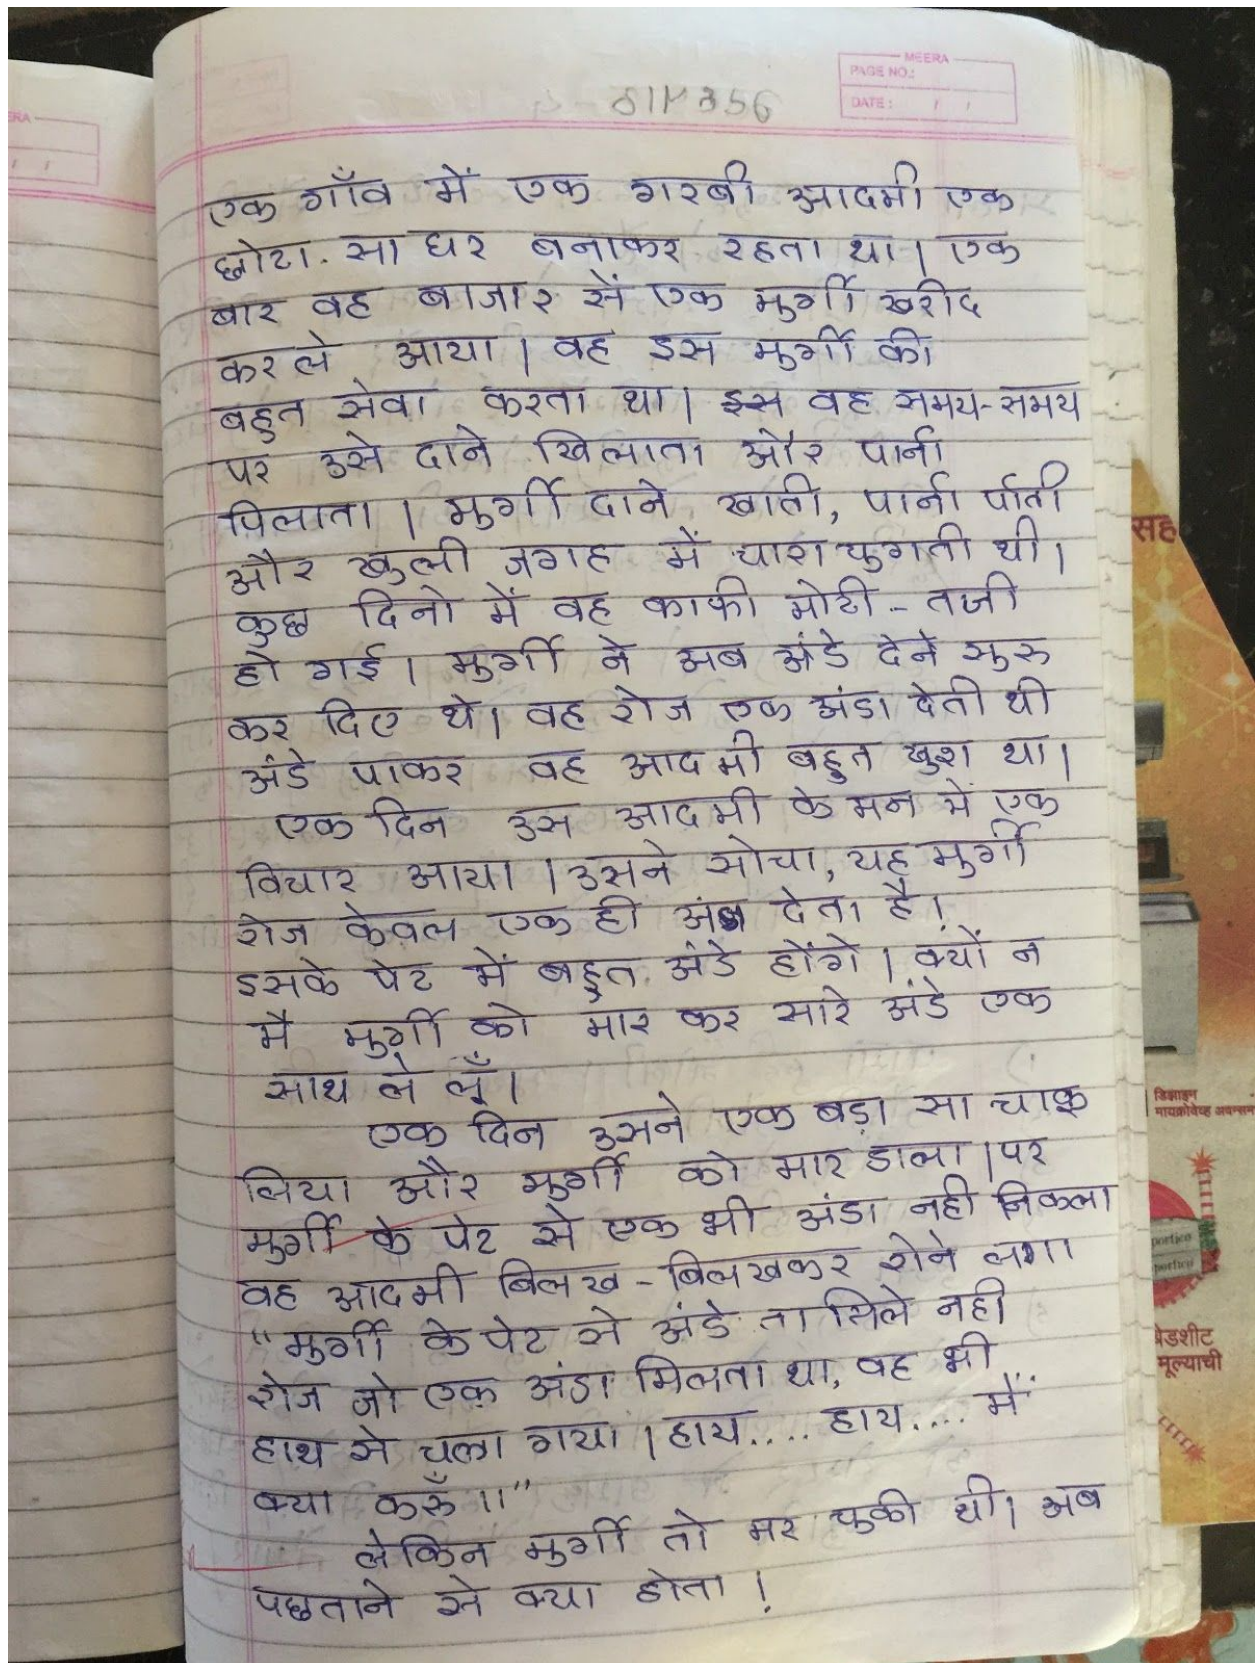 MEERA
PAGE NO.:
DATE: / /
एक गाँव में एक गरबी आदमी एक
छोटा. सा घर बनाकर रहता था। एक
बार वह बाजार सें एक मुर्गी खरीद
कर ले आया। वह इस मुर्गी की
बहुत सेवा करता था। इस वह समय-समय
पर उसे दाने खिलाता और पानी
पिलाता। मुर्गी दाने खाती, पानी पीती
और खुली जगह में चारा चुगती थी।
कुछ दिनो में वह काफी मोटी - तजी
हो गई। मुर्गी ने अब अंडे देने सुरु
कर दिए थे। वह रोज एक अंडा देती थी
अंडे पाकर वह आदमी बहुत खुश था।
एक दिन उस आदमी के मन में एक
विचार आया। उसने सोचा, यह मुर्गी
रोज केवल एक ही देता है।
इसके पेट में बहुत अंडे होंगे। क्यों न
मै मुर्गी को मार कर सारे अंडे एक
साथ ले लूँ।
एक दिन उसने एक बड़ा सा चाकू
लिया और मुर्गी को मार डाला। पर
मुर्गी के पेट से एक भी अंडा नही निकला
वह आदमी बिलख - बिलखकर रोने लगा
"मुर्गी के पेट से अंडे ता मिले नही
रोज जो एक अंडा मिलता था, वह भी
हाथ से चला गया। हाय..... हाय.... मैं
क्या करूँ।।"
लेकिन मुर्गी तो मर चुकी थी। अब
पछताने से क्या होता!
सह
डिझाइन
मायक्रोवेव्ह अवनसम
portico
portico
बेडशीट
मूल्याची